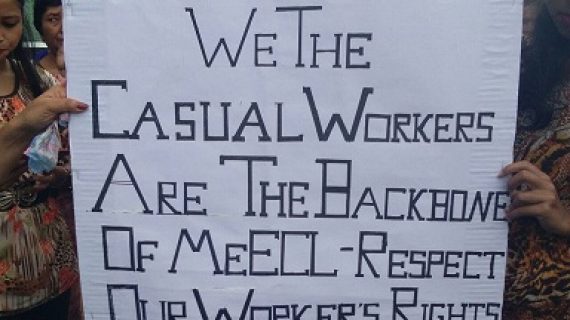 WE THE
CASUAL WORKERS
ARE THE BACKBONE
OF MeECL-RESPECT
OUR WORKER'S RIGHTS